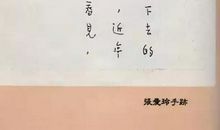 下去的
，近年
看見，
張愛玲手跡